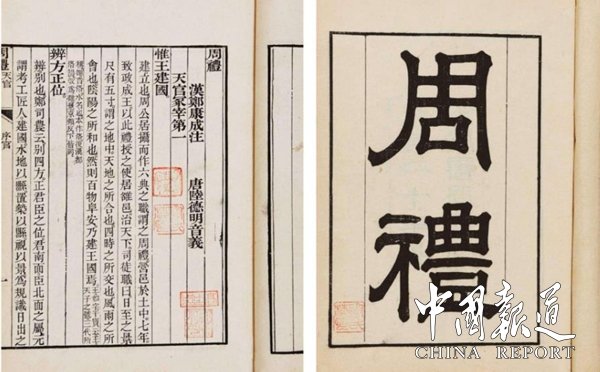 周禮
漢鄭康成注
唐陸德明音義
天官冢宰第一
惟王建國
建立也周公居攝而作六典之職謂之周禮營邑於土中七年
致政成王以此禮授之使居雒邑治天下司徒職曰日至之景
尺有五寸謂之地中天地之所合也四時之所交也風雨之所
會也陰陽之所和也然則百物阜安乃建王國焉
辨方正位
辨別也鄭司農云別四方正君臣之位君南面臣北面之屬元
謂考工匠人建國水地以縣置槷以縣視以景為規識日出之
周禮
天官
序官
一
周禮
中國報道
CHINA REPORT